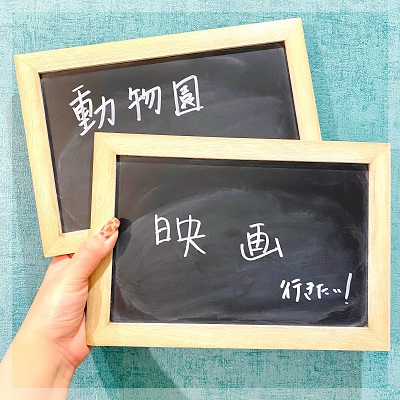 動物園
映画
行きたい!